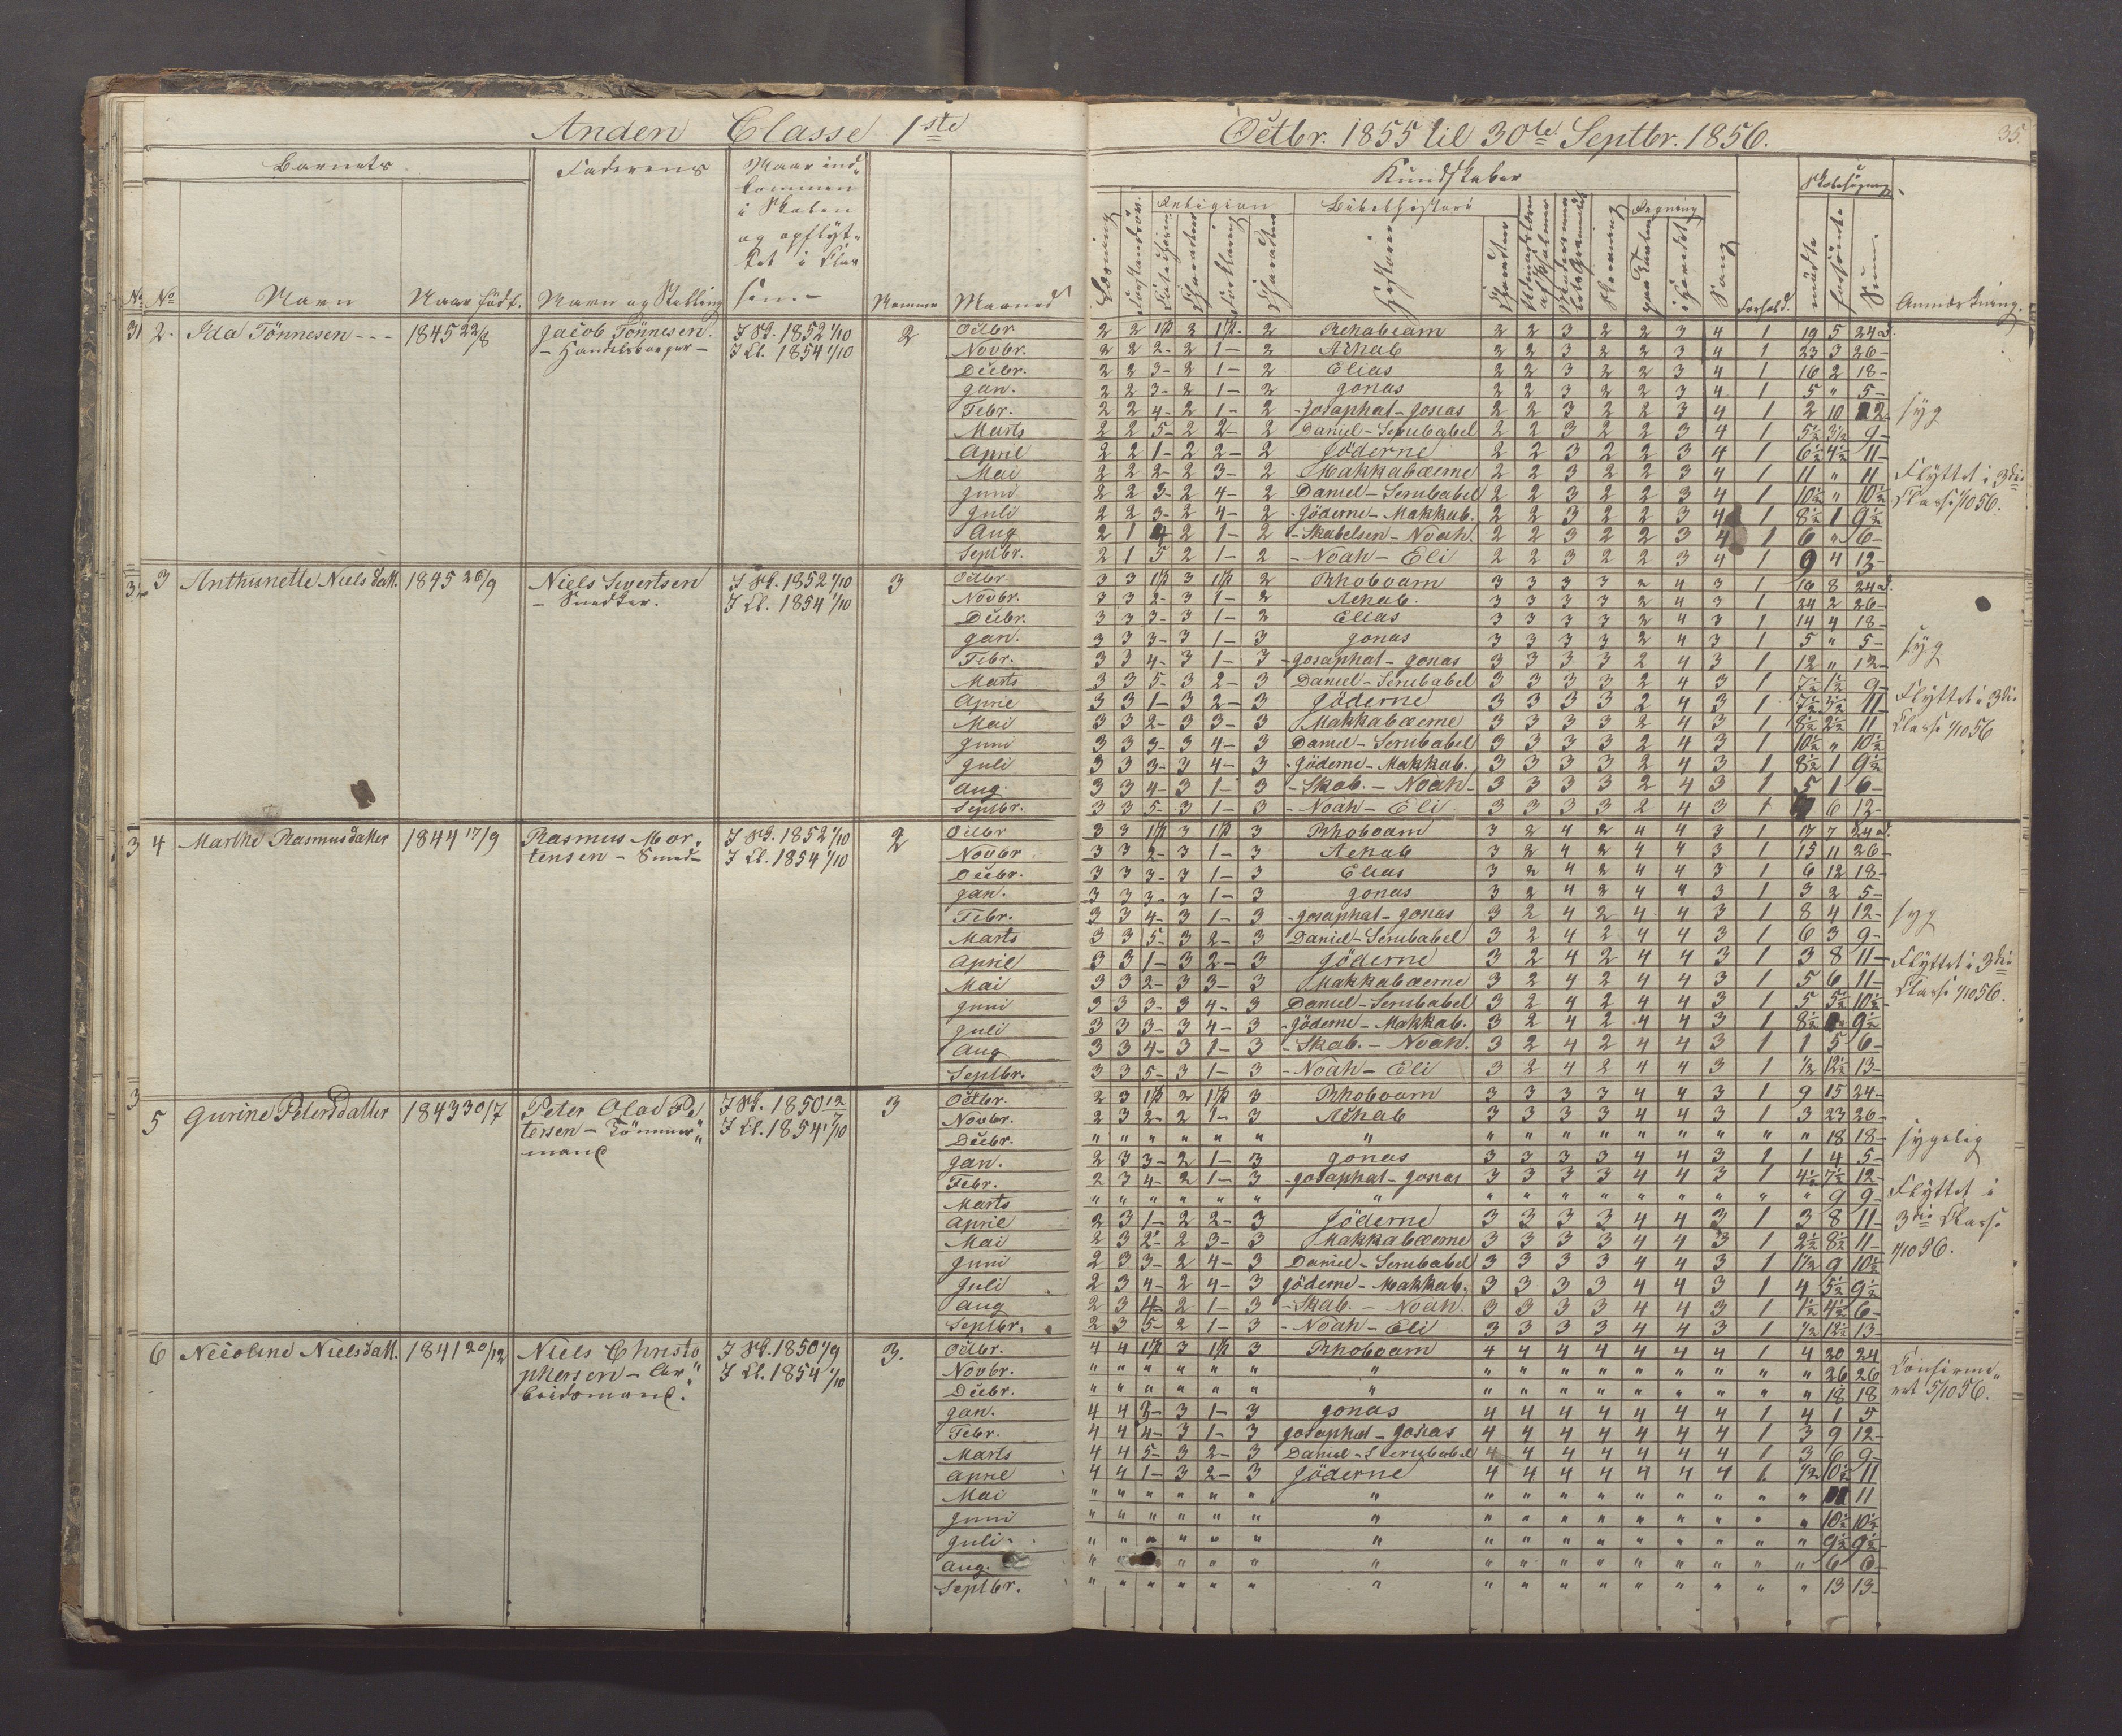 Anden Classe 1ste
Octbr. 1855 til 30te Septbr. 1856.
35.
Barnets
Faderens
Naar ind-
kommen
i Skolen
og opflyt-
tet i Clas
sen
Navn
Naar født.
Navn og Stilling
Nummer
Maaned
Kundskaber
Religion
Bibelhistorie
Regning
Skolesøgning
Læsning
Historier
Sang
Forhold.
mødte
forsømte
Sum.
Anmærkning.
2. Ida Tönnesen - - - 1845 22/8 Jacob Tönnesen. I Sk. 1852 1/10 2
- Handelsborger - I Cl. 1854 1/10
Octbr. 2 2 1ste 2 1ste 2 Rehabeam 2 2 3 2 2 3 4 1 19 5 24 d.
Novbr. 2 2 2- 2 1- 2 Achab 2 2 3 2 2 3 4 1 23 3 26-
Decbr. 2 2 3- 2 1- 2 Elias 2 2 3 2 2 3 4 1 16 2 18-
Jan. 2 2 3- 2 1- 2 Jonas 2 2 3 2 2 3 4 1 5 " 5-
Febr. 2 2 4- 2 1- 2 -Josaphat-Josias 2 2 3 2 2 3 4 1 2 10 12- syg
Marts 2 2 5- 2 2- 2 Daniel-Serubabel 2 2 3 2 2 3 4 1 5½ 3½ 9-
April 2 2 1- 2 2- 2 Jöderne 2 2 3 2 2 3 4 1 6½ 4½ 11-
Mai 2 2 2- 2 3- 2 Makkabæerne 2 2 3 2 2 3 4 1 11 " 11 Flyttet i 3die
Juni 2 2 3- 2 4- 2 Daniel-Serubabel 2 2 3 2 2 3 4 1 10½ " 10½ Classe 1/10 56.
Juli 2 2 3- 2 4- 2 -Jöderne-Makkab. 2 2 3 2 2 3 4 1 8½ 1 9½
Aug 2 1 4 2 1- 2 -Skabelsen-Noah. 2 2 3 2 2 3 4 1 6 " 6-
Septbr. 2 1 5 2 1- 2 -Noah-Eli 2 2 3 2 2 3 4 1 9 4 13-
3 Anthunette Nielsdatt. 1845 26/9 Niels Sivertsen I Sk. 1852 1/10 3
- Snedker. I Cl. 1854 1/10
Octbr. 3 3 1ste 3 1ste 2 Rhoboam 3 3 3 3 2 4 3 1 16 8 24 d.
Novbr. 3 3 2- 3 1- 2 Achab. 3 3 3 3 2 4 3 1 24 2 26-
Decbr. 3 3 3- 3 1- 2 Elias 3 3 3 3 2 4 3 1 14 4 18-
Jan. 3 3 3- 3 1- 3 Jonas 3 3 3 3 2 4 3 1 5 " 5-
Febr. 3 3 4- 3 1- 3 -Josaphat-Jonas 3 3 3 3 2 4 3 1 12 " 12- syg
Marts 3 3 5- 3 2- 3 Daniel-Serubabel 3 3 3 3 2 4 3 1 7½ 1½ 9-
April 3 3 1- 3 2- 3 Jöderne 3 3 3 3 2 4 3 1 7½ 3½ 11 Flyttet i 3die
Mai 3 3 2- 3 3- 3 Makkabæerne 3 3 3 3 2 4 3 1 8½ 2½ 11 Classe 1/10 56
Juni 3 3 3- 3 4- 3 Daniel-Serubabel 3 3 3 3 2 4 3 1 10½ " 10½
Juli 3 3 3- 3 4- 3 -Jöderne-Makkab. 3 3 3 3 2 4 3 1 8½ 1 9½
Aug. 3 3 4- 3 1- 3 -Skab.-Noah- 3 3 3 3 2 4 3 1 5 1 6-
Septbr. 3 3 5- 3 1- 3 -Noah-Eli 3 3 3 3 2 4 3 1 6 12-
4 Marthe Rasmusdatter 1844 17/9 Rasmus Mor- I Sk. 1852 1/10 2
tensen - Smed- I Cl. 1854 1/10
Octbr 3 3 1ste 3 1ste 3 Rhoboam 3 2 4 2 4 4 3 1 17 7 24 d.
Novbr 3 3 2- 3 1- 3 Achab 3 2 4 2 4 4 3 1 15 11 26-
Decbr. 3 3 3- 3 1- 3 Elias 3 2 4 2 4 4 3 1 6 12 18-
Jan. 3 3 3- 3 1- 3 Jonas 3 2 4 2 4 4 3 1 3 2 5-
Febr. 3 3 4- 3 1- 3 -Josaphat-Josias 3 2 4 2 4 4 3 1 8 4 12- syg
Marts 3 3 5- 3 2- 3 Daniel-Serubabel 3 2 4 2 4 4 3 1 6 3 9-
April 3 3 1- 3 2- 3 Jöderne 3 2 4 2 4 4 3 1 3 8 11- Flyttet i 3die
Mai 3 3 2- 3 3- 3 Makkabæerne 3 2 4 2 4 4 3 1 5 6 11- Classe 1/10 56.
Juni 3 3 3- 3 4- 3 Daniel-Serubabel 3 2 4 2 4 4 3 1 5 5½ 10½-
Juli 3 3 3- 3 4- 3 -Jöderne-Makkab. 3 2 4 2 4 4 3 1 8½ 9½
Aug 3 3 4- 3 1- 3 -Skab.-Noah. 3 2 4 2 4 4 3 1 1 5 6-
Septbr. 3 3 5- 3 1- 3 -Noah-Eli 3 2 4 2 4 4 3 1 ½ 12½ 13-
5 Gurine Petersdatter 1843 30/7 Peter Olai Pe I Sk. 1850 3
tersen - Tömmer" I Cl. 1854 1/10
mand
Octbr. 2 3 1ste 2 1ste 3 Rhoboam 3 3 3 3 4 4 3 1 9 15 24-
Novbr. 2 3 2- 2 1- 3 Achab 3 3 3 3 4 4 3 1 3 23 26-
Decbr. " " " " " " " " " " " " " " " " 18 18- sygelig
Jan. 2 3 3- 2 1- 3 Jonas 3 3 3 3 4 4 3 1 1 4 5-
Febr. 2 3 4- 2 1- 3 -Josaphat-Josias 3 3 3 3 4 4 3 1 4½ 7½ 12- Flyttet i
Marts " " " " " " " " " " " " " " " " 9 9-
April 2 3 1- 2 2- 3 Jöderne 3 3 3 3 4 4 3 1 3 8 11- 3die Classe
Mai 2 3 2- 2 3- 3 Makkabæerne 3 3 3 3 4 4 3 1 2½ 8½ 11- 1/10 56.
Juni 2 3 3- 2 4- 3 Daniel-Serubabel 3 3 3 3 4 4 3 1 1½ 9 10½
Juli 2 3 4- 2 4- 3 Jöderne-Makkab. 3 3 3 3 4 4 3 1 4 5½ 9½
Aug 2 3 4- 2 1- 3 -Skab.-Noah. 3 3 3 3 4 4 3 1 1½ 4½ 6-
Septbr. 2 3 5- 2 1- 3 -Noah-Eli 3 3 3 3 4 4 3 1 ½ 12½ 13-
6 Necoline Nielsdatt. 1841 20/12 Niels Christo I Sk. 1850 1/9 3.
phersen - Ar" I Cl. 1854 1/10
beidsmand.
Octbr. 4 4 1ste 3 1ste 3 Rhoboam 4 4 4 4 4 4 4 1 4 20 24
Novbr. " " " " " " " " " " " " " " " " 26 26 Confirme"
Decbr. " " " " " " " " " " " " " " " " 18 18 ret 5/10 56.
Jan. 4 4 3- 3 1- 3 Jonas 4 4 4 4 4 4 4 1 4 1 5
Febr. 4 4 4- 3 1- 3 Josaphat-Josias 4 4 4 4 4 4 4 1 3 9 12-
Marts 4 4 5- 3 2- 3 Daniel-Serubabel 4 4 4 4 4 4 4 1 3 6 9-
April 4 4 1- 3 2- 3 Jöderne 4 4 4 4 4 4 4 1 ½ 10½ 11
Mai " " " " " " " " " " " " " " " " 11 11
Juni " " " " " " " " " " " " " " " " 10½ 10½
Juli " " " " " " " " " " " " " " " " 9½ 9½
Aug. " " " " " " " " " " " " " " " 6 6
Septbr. " " " " " " " " " " " " " " " " 13 13-